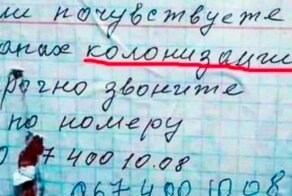 ли почувствуете
апах колонизации
рочно звоните
по номеру
7 400 10.08
067 400 10 08